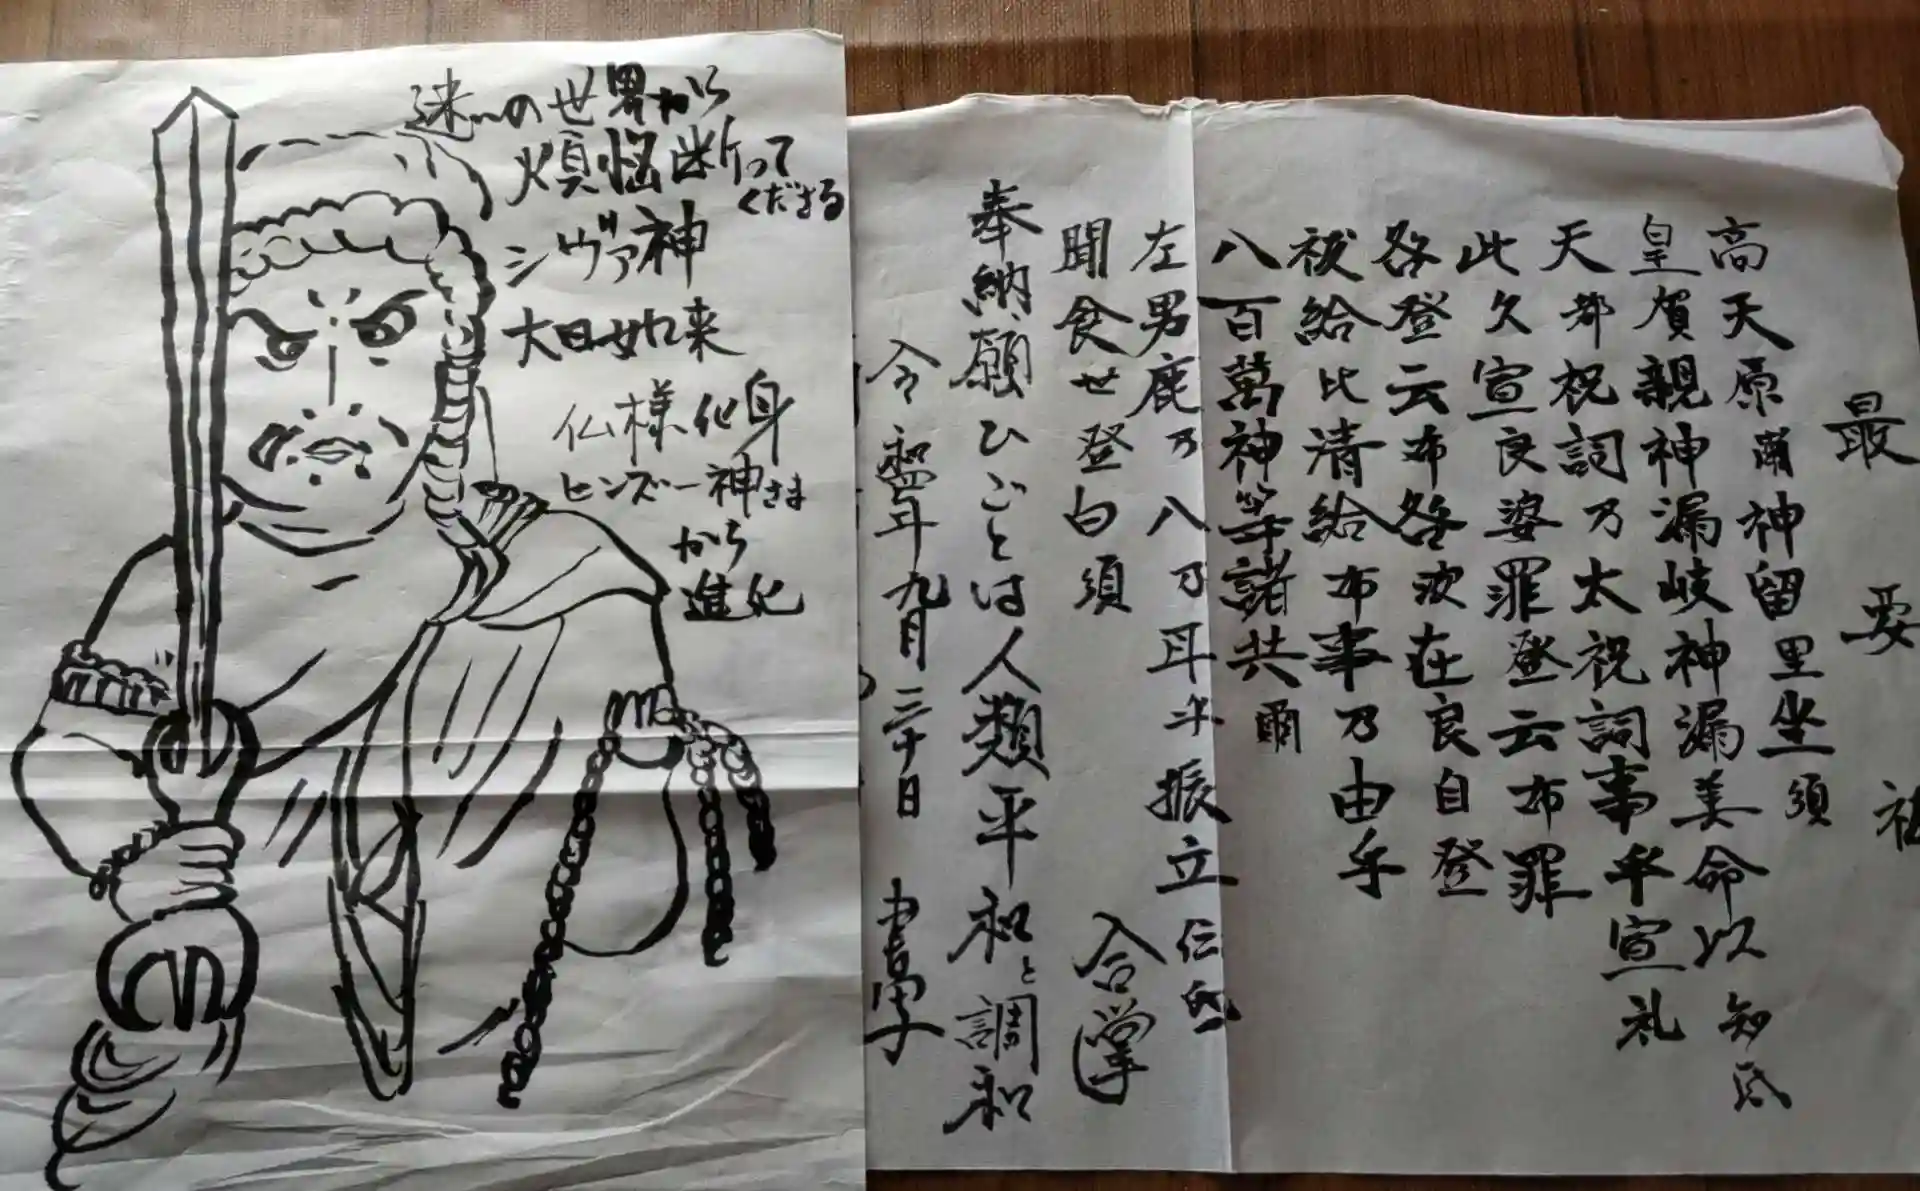 迷いの世界から
煩悩断って
くださる
シヴァ神
大日如来
仏様化身
ヒンズー神さま
から
進化
最要祓
高天原爾神留里坐須
皇賀親神漏岐神漏美命以知氐
天都祝詞乃太祝詞事乎宣礼
此久宣良婆罪登云布罪
咎登云布咎波在良自登
祓給比清給布事乃由乎
八百萬神等諸共爾
左男鹿乃八乃耳乎振立仁氐
聞食世登白須 合掌
奉納、願ひごとは人類平和と調和
令和四年九月三十日